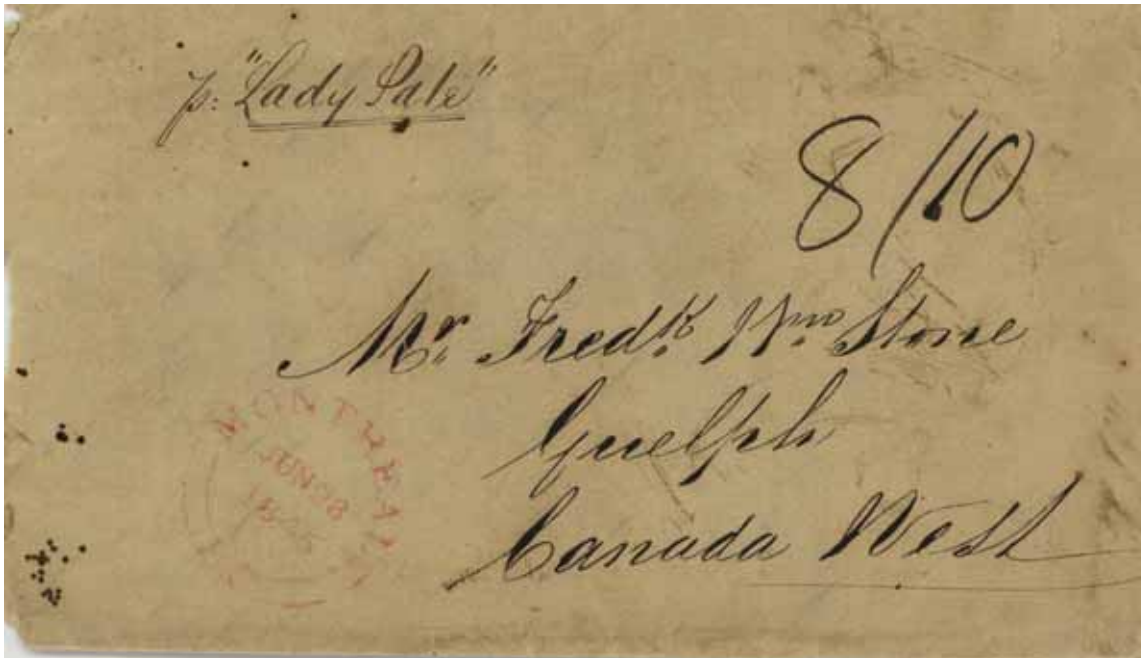 p: "Lady Sale"
8/10
Mr. Fredk. Wm. Stone
Guelph
Canada West
MONTREAL
JUN 28